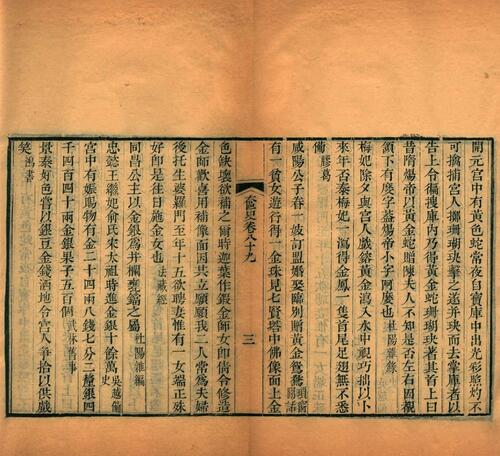 開元宮中有黃色蛇常夜自寶庫中出光彩照灼不
可擒捕宮人擲珊瑚玦擊之遂并玦而去掌庫者以
告上令徧搜庫內乃得黃金蛇珊瑚玦著其首上曰
昔隋煬帝以黃金蛇贈陳夫人不知是否左右因視
頷下有麼字蓋煬帝小字阿麼也杜陽雜錄
梅妃除夕與宮人戲鎔黃金瀉入水中視巧拙以卜
來年否泰梅妃一瀉得金鳳一隻首尾足翅無不悉
備膠葛
咸陽公子春一妓訂盟婚娶臨別贈黃金鴛鴦瑣窗閒話
有一貧女遊行得一金珠見七賢塔中佛像面上金
金史卷八十九
三
色缺壞欲補之爾時迦葉作鍜金師女卽倩令修造
金師歡喜用補像面因共立願願我二人常為夫婦
後托生婆羅門至年十五欲聘妻惟有一女端正殊
好卽是往日施金女也法藏經
同昌公主以金銀為井欄甕鐺之屬杜陽雜編
忠懿王繼妃俞氏宋太祖時進金銀十餘萬吳越備史
宮中有娠賜物有金二十四兩八錢七分二釐銀四
千四百四十兩金銀果子五百個武林舊事
景泰好色嘗以銀豆金錢洒地令宮人爭拾以供戲
笑鴻書